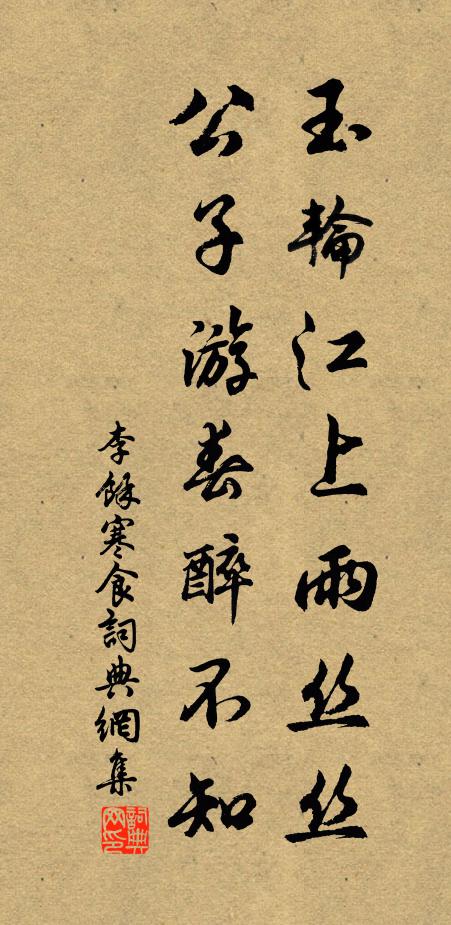 玉輪江上雨丝丝
公子游春醉不知
李餘寒食詞典網集
詞典网印